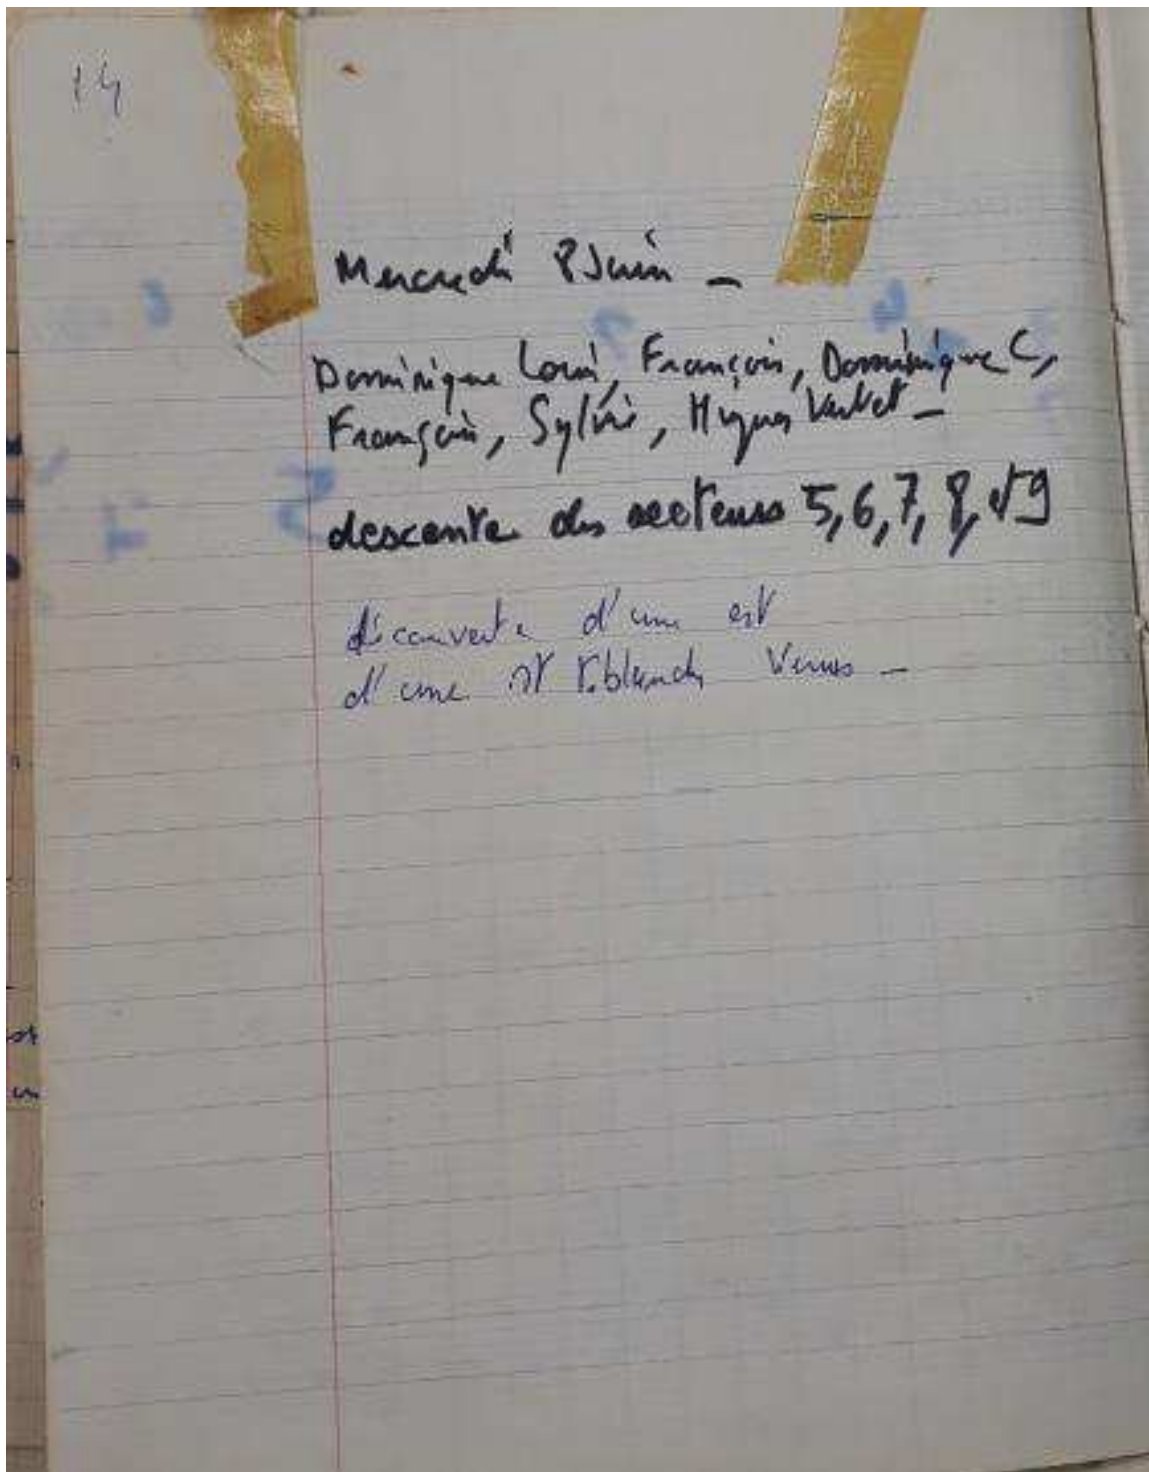 14
Mercredi 8 Juin -
Dominique Louis, François, Dominique C,
François, Sylvie, Hugues Verbet -
descente des secteurs 5, 6, 7, 8, et 9
découverte d'une est
d'une st blanche Venus -